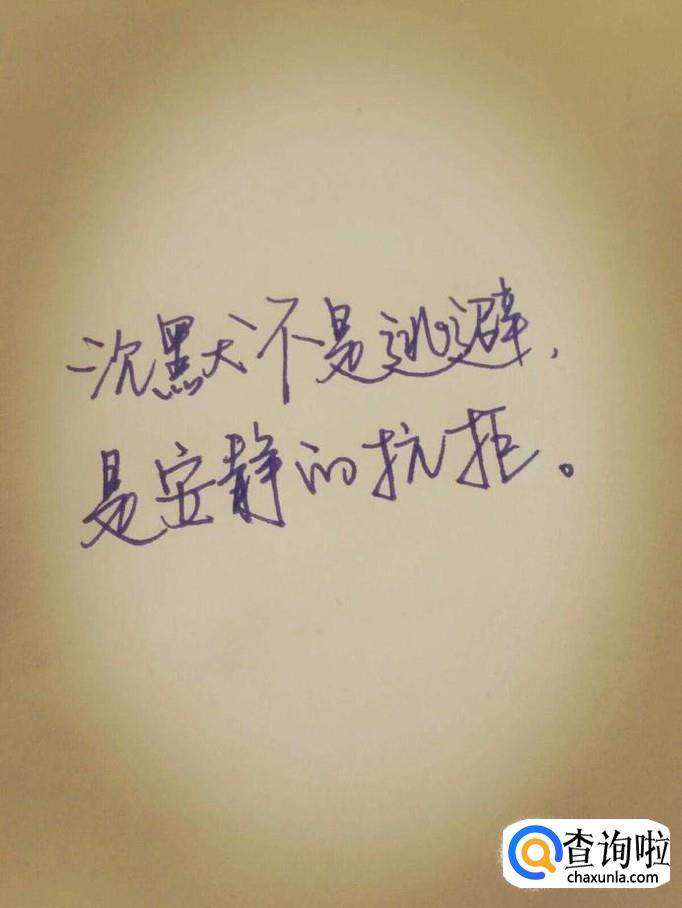 沉默不是逃避,
是安静的抗拒。
查询啦
chaxunla.com